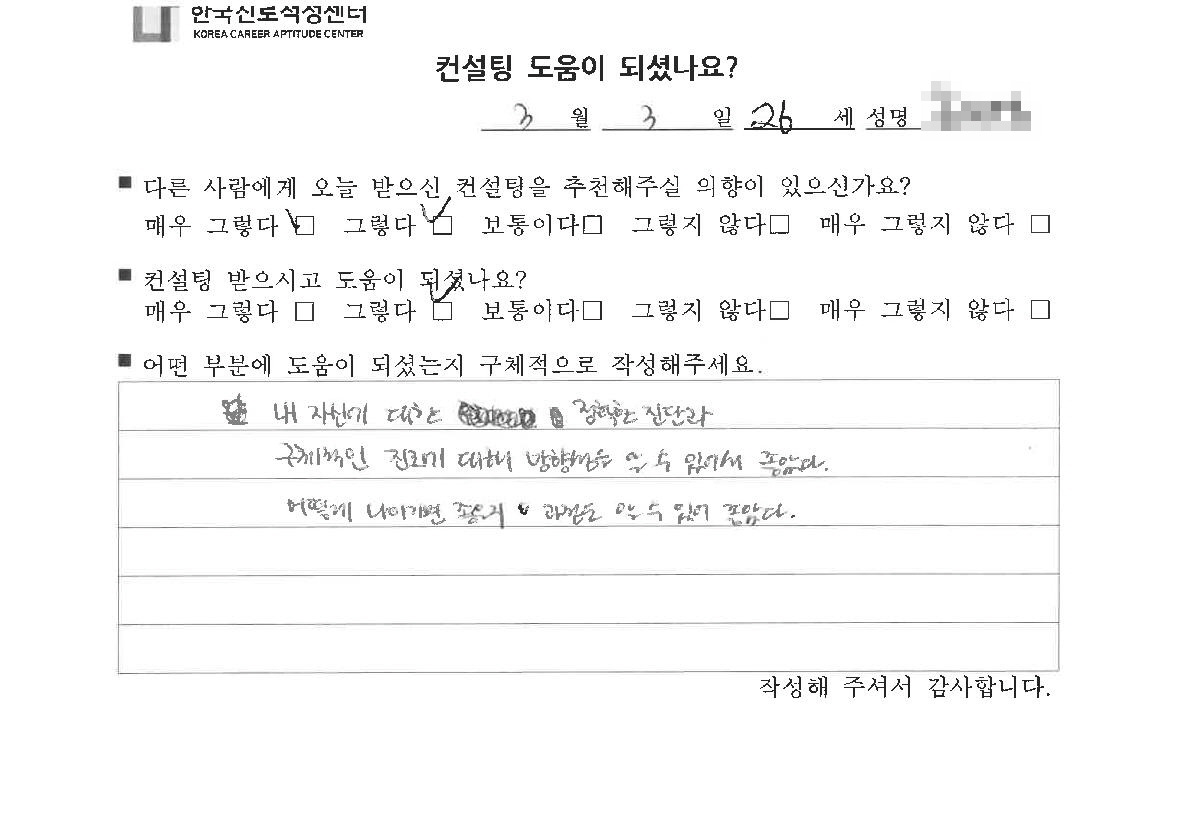 한국진로적성센터
KOREA CAREER APTITUDE CENTER
컨설팅 도움이 되셨나요?
3 월 3 일 26 세 성명
■ 다른 사람에게 오늘 받으신 컨설팅을 추천해주실 의향이 있으신가요?
매우 그렇다 □ 그렇다 □ 보통이다□ 그렇지 않다□ 매우 그렇지 않다 □
■ 컨설팅 받으시고 도움이 되셨나요?
매우 그렇다 □ 그렇다 □ 보통이다□ 그렇지 않다□ 매우 그렇지 않다 □
■ 어떤 부분에 도움이 되셨는지 구체적으로 작성해주세요.
내 자신에 대한 정확한 진단과
구체적인 진로에 대해 방향성을 알 수 있어서 좋았다.
어떻게 나아가면 좋을지 과정도 알 수 있어 좋았다.
작성해 주셔서 감사합니다.